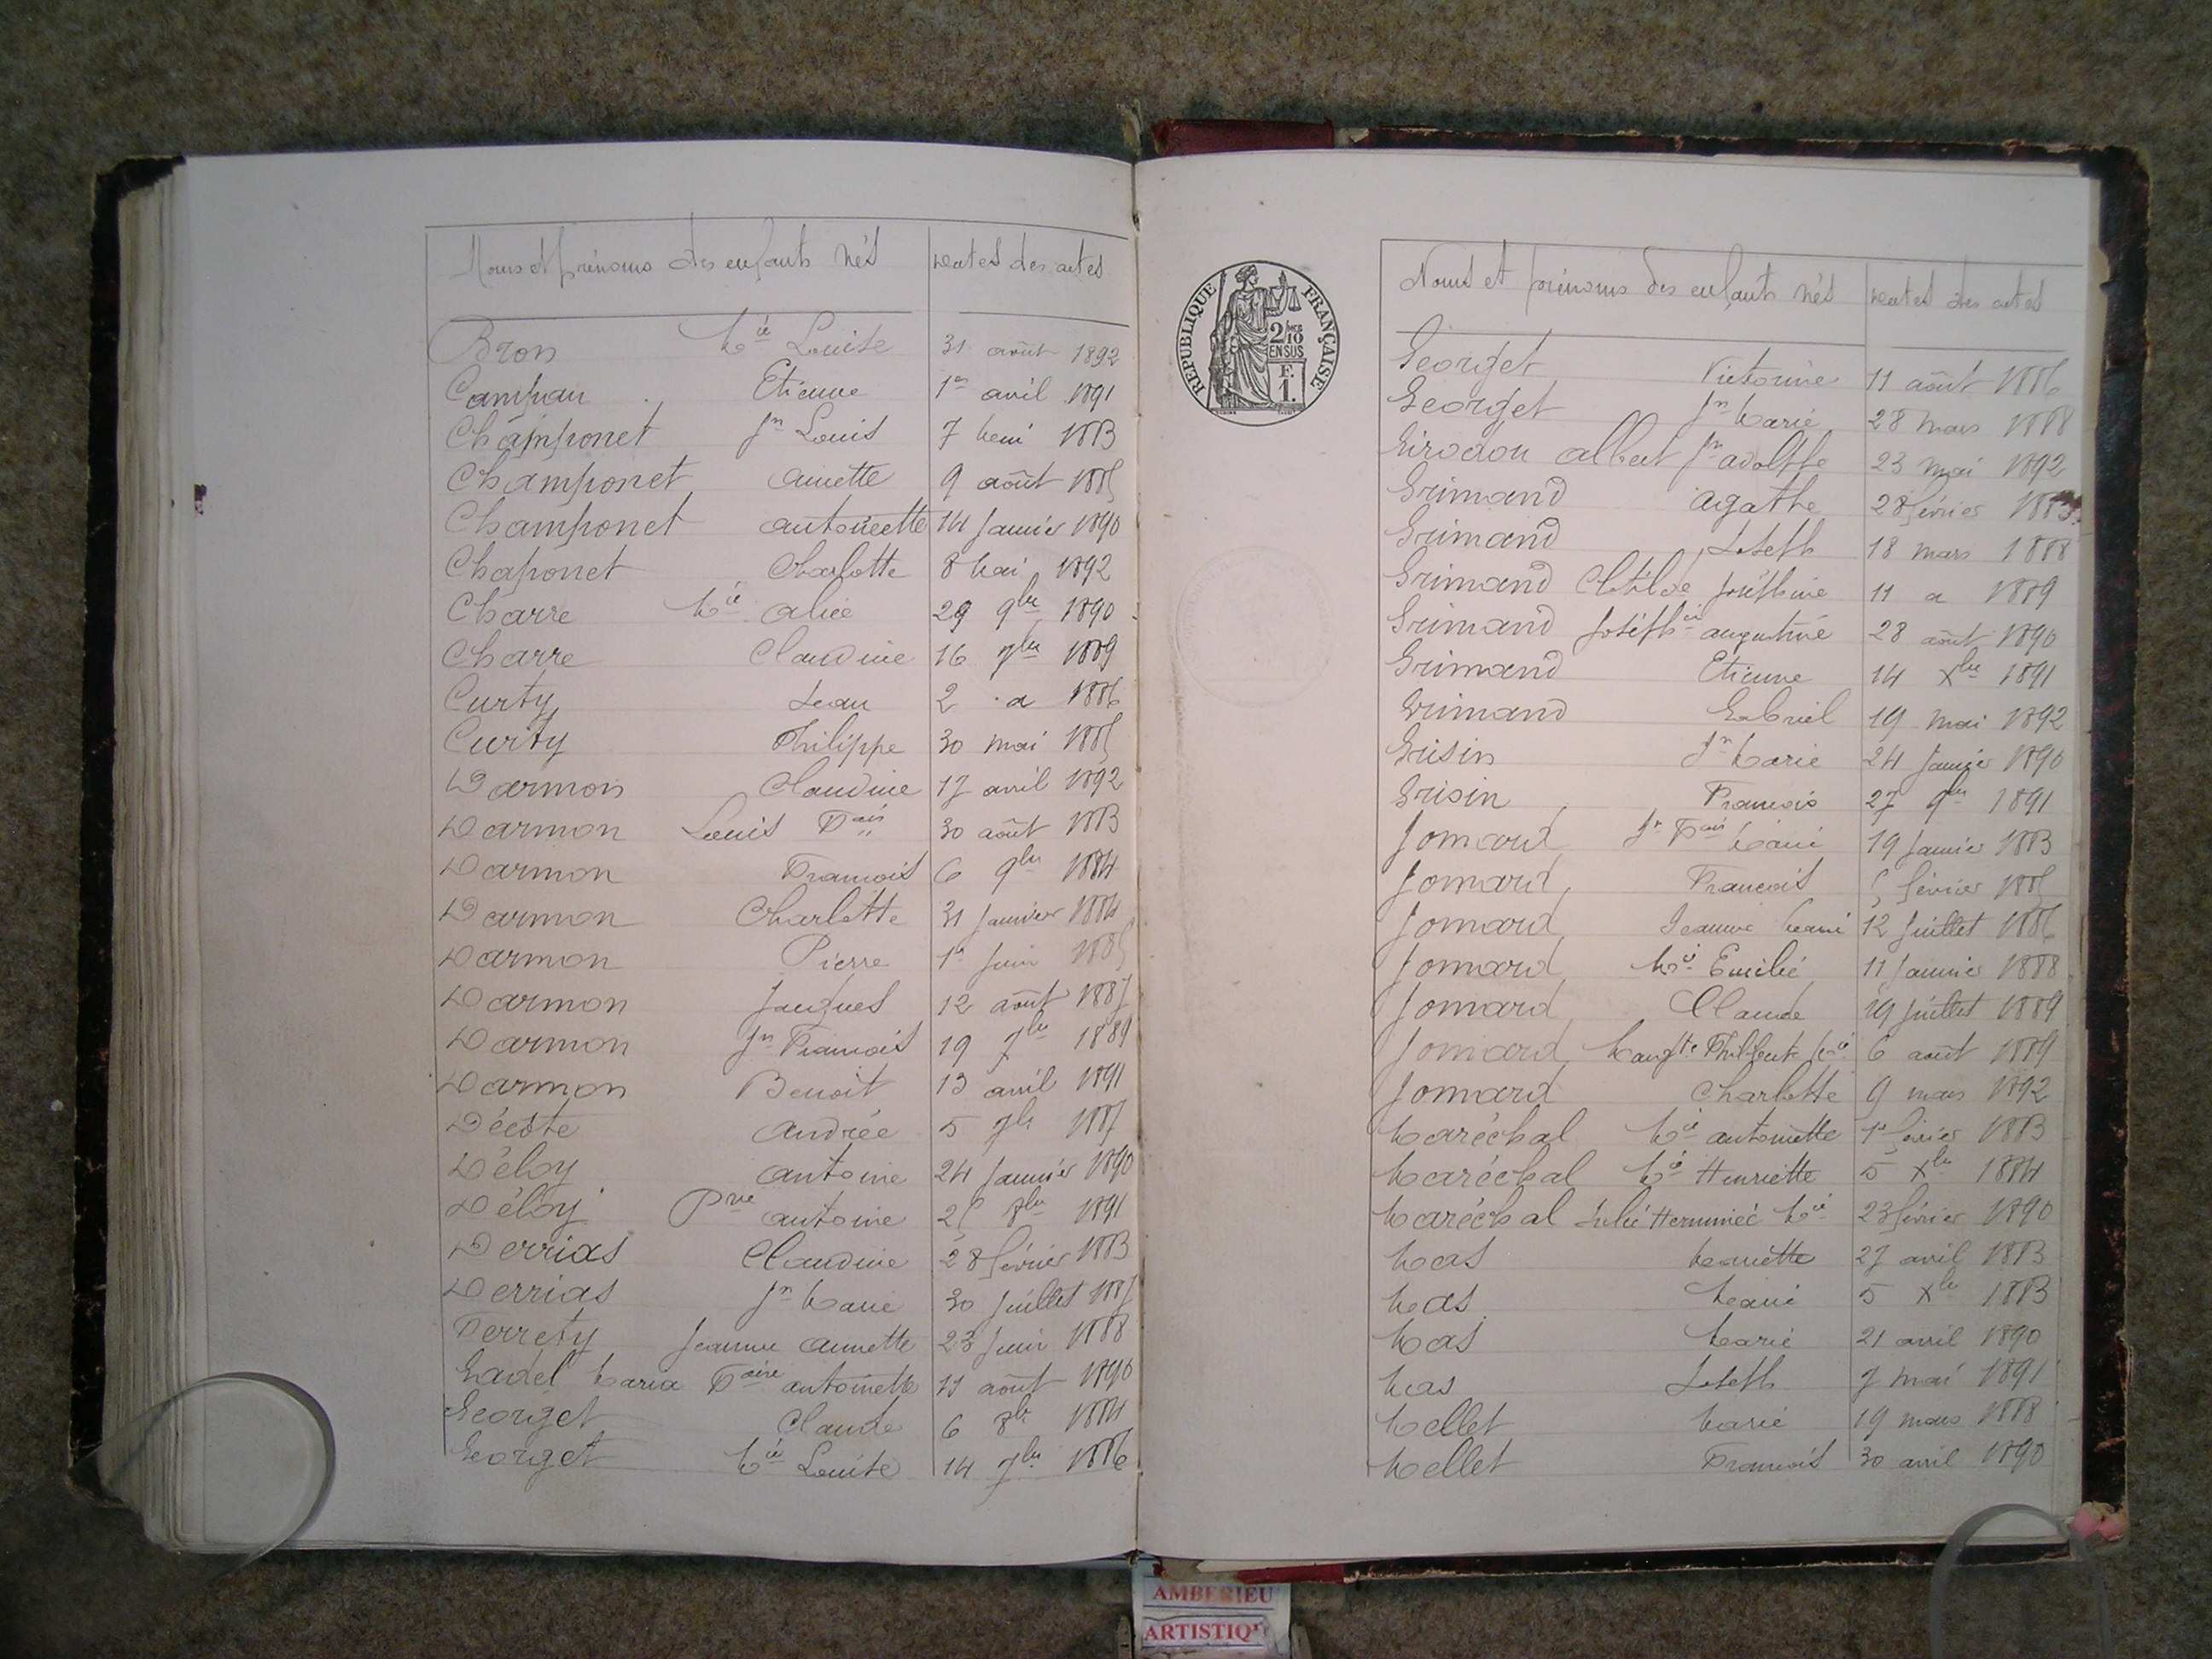 Noms et prénoms des enfants nés Dates des actes
Bron Mie Louise 31 août 1892
Campan Etienne 1er avril 1891
Champonet Jn Louis 7 Mai 1883
Champonet Annette 9 août 1885
Champonet Antoinette 14 Janvier 1890
Chaponet Charlotte 8 Mai 1892
Charre Mie Alice 29 9bre 1890
Charre Claudine 16 7bre 1889
Curty Jean 2 a 1886
Curty Philippe 30 mai 1885
Darmon Claudine 17 avril 1892
Darmon Louis Fois 30 août 1883
Darmon François 6 9bre 1884
Darmon Charlotte 31 Janvier 1884
Darmon Pierre 1er Juin 1885
Darmon Jacques 12 août 1887
Darmon Jn François 19 7bre 1889
Darmon Benoit 13 avril 1891
Décôte Andrée 5 7bre 1887
Déloy Antoine 24 Janvier 1890
Déloy Pre Antoine 25 8bre 1891
Derrias Claudine 28 février 1883
Derrias Jn Marie 30 Juillet 1887
Ferrety Jeanne Annette 23 Juin 1888
Gadel Maria Antoinette 11 août 1890
Georget Claude 6 8bre 1884
Georget Mie Louise 14 7bre 1886
REPUBLIQUE FRANÇAISE
2/10 EN SUS
F. 1.
Noms et prénoms des enfants nés Dates des actes
Georget Victorine 11 août 1886
Georget Jn Marie 28 mars 1888
Girodon Albert Jn Adolphe 23 mai 1892
Grimand Agathe 28 février 1883
Grimand Joseph 18 mars 1888
Grimand Clotilde Joséphine 11 a 1889
Grimand Joséphine Augustine 28 août 1890
Grimand Etienne 14 Xbre 1891
Grimand Gabriel 19 mai 1892
Grisin Jn Marie 24 Janvier 1890
Grisin François 27 9bre 1891
Jomard Jn Fois Marie 19 Janvier 1883
Jomard François 5 février 1885
Jomard Jeanne Marie 12 Juillet 1886
Jomard Mie Emilie 11 Janvier 1888
Jomard Claude 19 Juillet 1889
Jomard Philiberte 6 août 1889
Jomard Charlotte 9 mars 1892
Maréchal Mie Antoinette 1er février 1883
Maréchal Mie Henriette 5 Xbre 1884
Maréchal Julie Herminie Mie 23 février 1890
Mas Mariette 27 avril 1883
Mas Marie 5 Xbre 1883
Mas Marie 21 avril 1890
Mas Joseph 7 mai 1891
Mellet Marie 19 mars 1888
Mellet François 30 avril 1890
AMBERIEU
ARTISTIQU